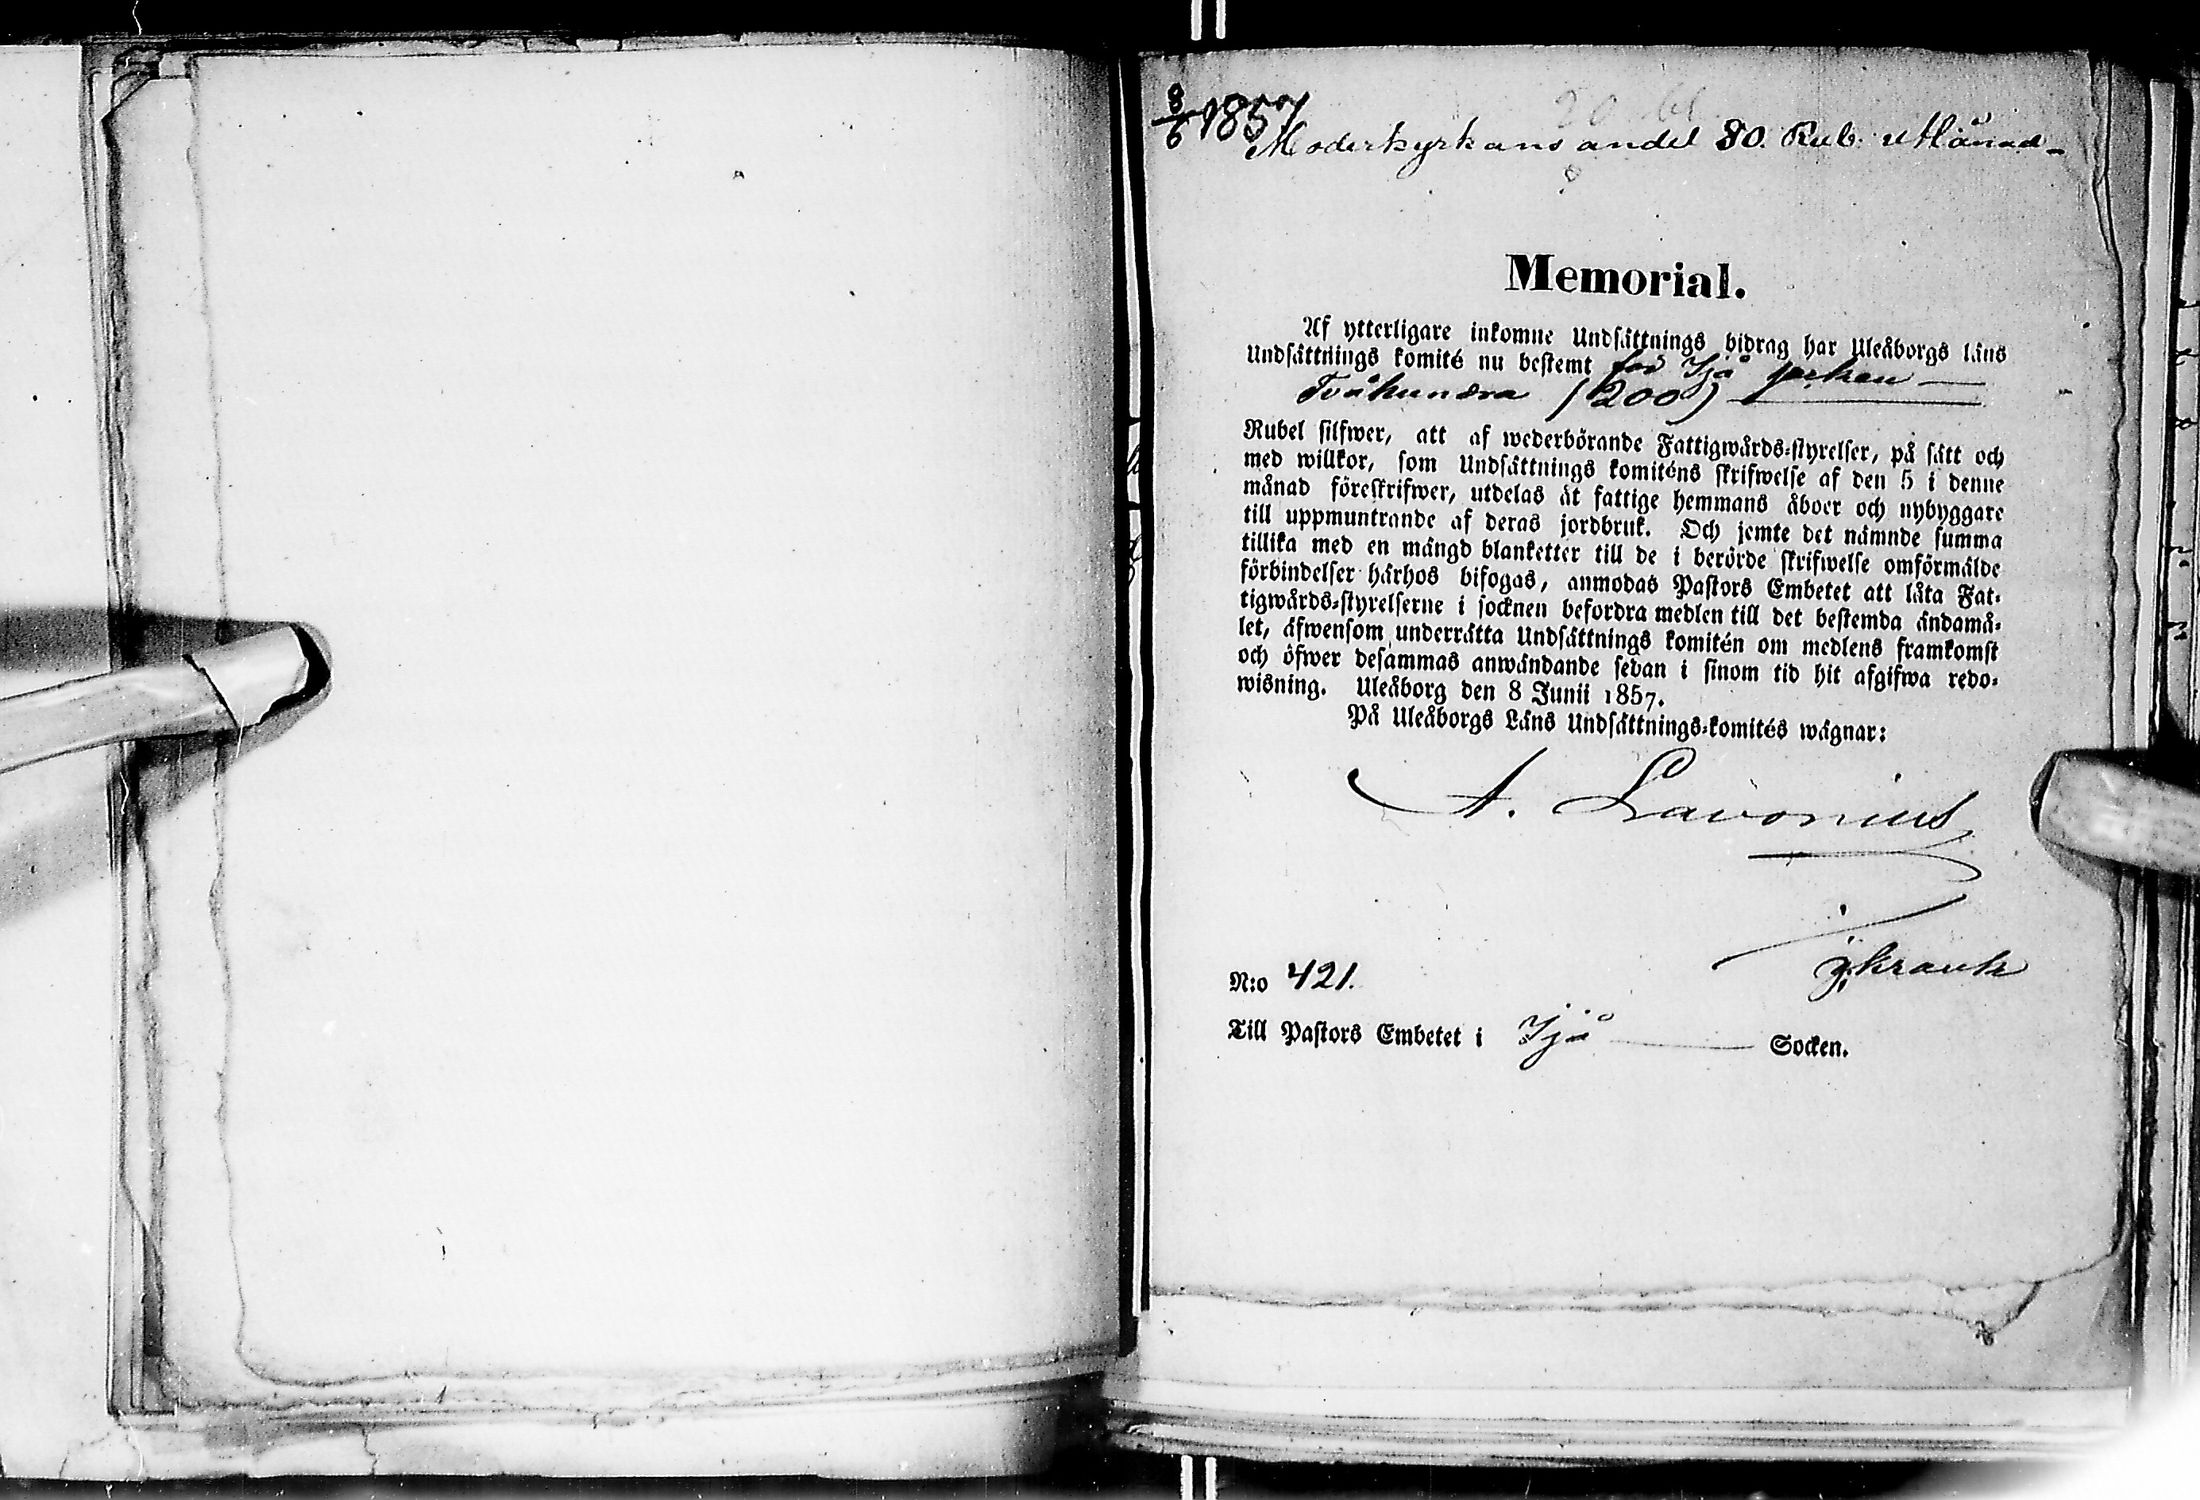 8/6 1857
Moderkyrkans andel 80. Rub. Månad-
Memorial.
Af ytterligare inkomne Undsättnings bidrag har Uleåborgs läns
Undsättnings komité nu bestemt för Ijå
Tvåhundra (200)
Rubel silfwer, att af wederbörande Fattigwårds-styrelser, på sätt och
med willkor, som Undsättnings komiténs skrifwelse af den 5 i denne
månad föreskrifwer, utdelas åt fattige hemmans åboer och nybyggare
till uppmuntrande af deras jordbruk. Och jemte det nämnde summa
tillika med en mängd blanketter till de i berörde skrifwelse omförmälde
förbindelser härhos bifogas, anmodas Pastors Embetet att låta Fat-
tigwårds-styrelserne i socknen befordra medlen till det bestemda ändamå-
let, äfwensom underrätta Undsättnings komitén om medlens framkomst
och öfwer desammas anwändande sedan i sinom tid hit afgifwa redo-
wisning. Uleåborg den 8 Junii 1857.
På Uleåborgs Läns Undsättnings-komités wägnar:
A. Lavonius
N:o 421.
Till Pastors Embetet i Ijå Socken.